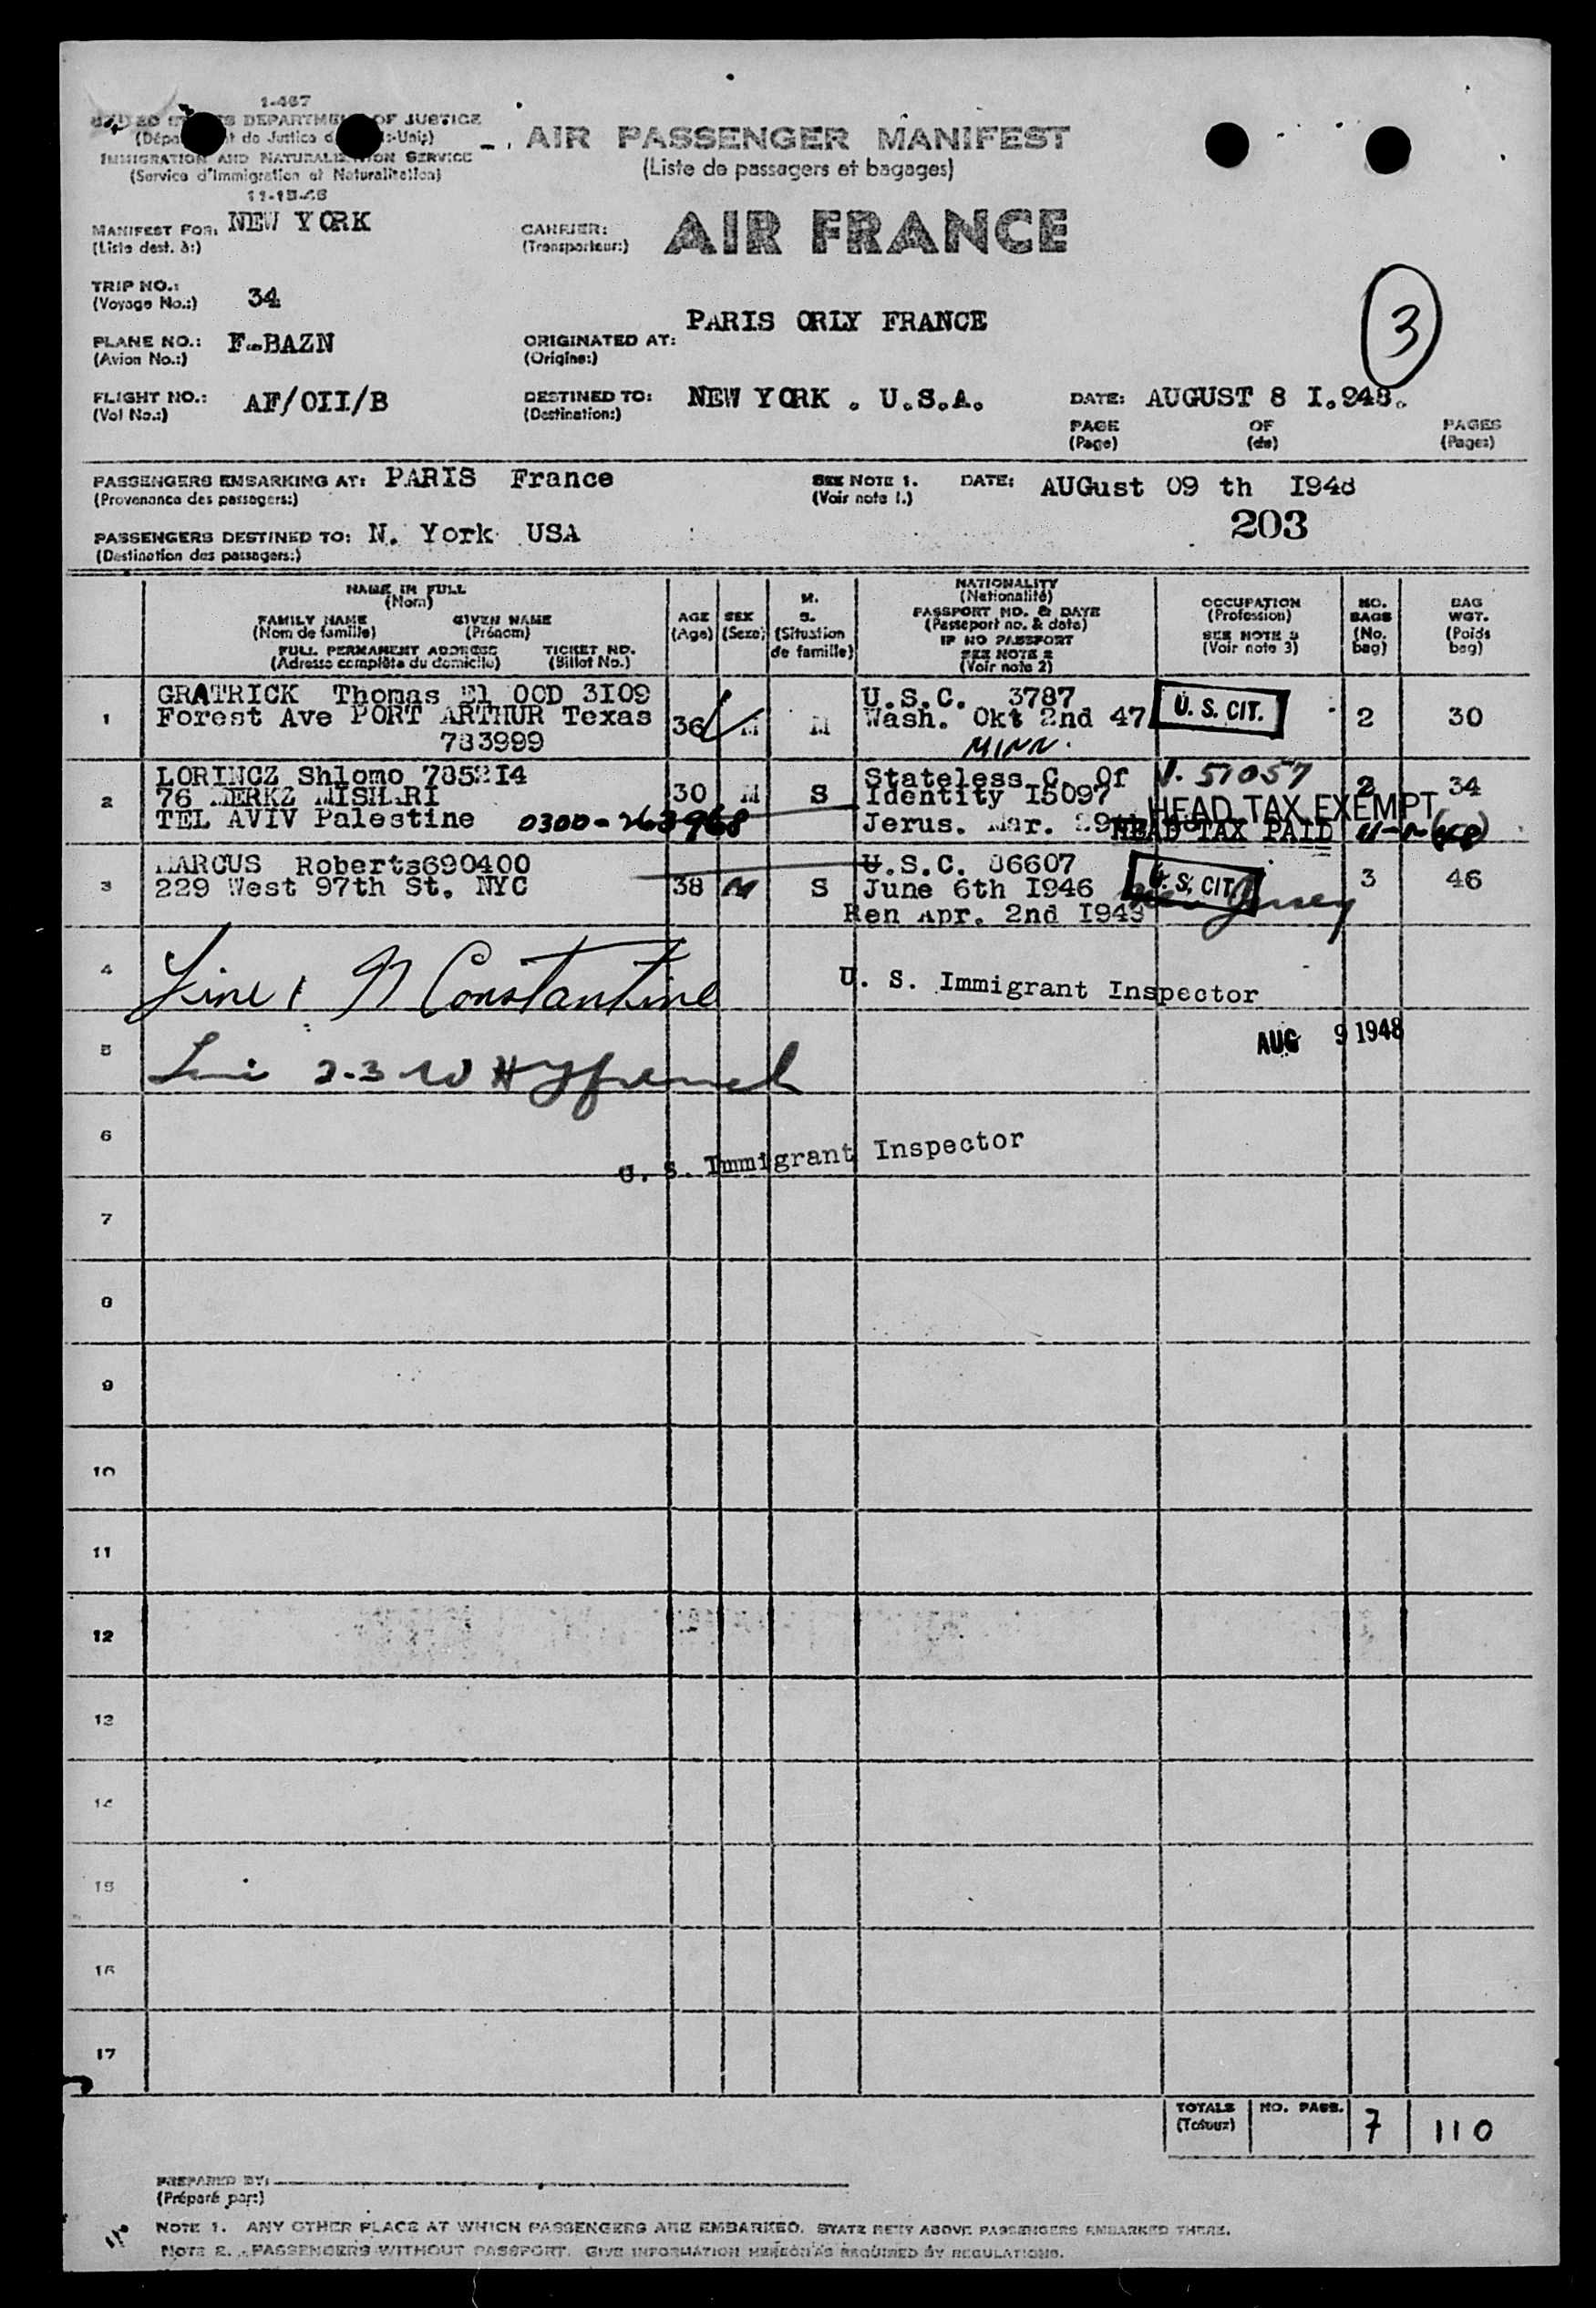 1-467
UNITED STATES DEPARTMENT OF JUSTICE
(Département de Justice des Etats-Unis)
IMMIGRATION AND NATURALIZATION SERVICE
(Service d'Immigration et Naturalisation)
11-15-46
AIR PASSENGER MANIFEST
(Liste de passagers et bagages)
MANIFEST FOR: NEW YORK
(Liste dest. à:)
CARRIER: AIR FRANCE
(Transporteur:)
TRIP NO.: 34
(Voyage No.:)
3
PLANE NO.: F-BAZN
(Avion No.:)
ORIGINATED AT: PARIS ORLY FRANCE
(Origine:)
FLIGHT NO.: AF/OII/B
(Vol No.:)
DESTINED TO: NEW YORK . U.S.A.
(Destination:)
DATE: AUGUST 8 I.948.
PAGE OF PAGES
(Page) (de) (Pages)
PASSENGERS EMBARKING AT: PARIS France
(Provenance des passagers:)
SEE NOTE 1.
(Voir note 1.)
DATE: AUGust 09 th I948
203
PASSENGERS DESTINED TO: N. York USA
(Destination des passagers:)
NAME IN FULL
(Nom)
FAMILY NAME GIVEN NAME
(Nom de famille) (Prénom)
FULL PERMANENT ADDRESS TICKET NO.
(Adresse complète du domicile) (Billet No.)
AGE
(Age)
SEX
(Sexe)
M.
S.
(Situation
de famille)
NATIONALITY
(Nationalité)
PASSPORT NO. & DATE
(Passeport no. & date)
IF NO PASSPORT
SEE NOTE 2
(Voir note 2)
OCCUPATION
(Profession)
SEE NOTE 3
(Voir note 3)
NO.
BAGS
(No.
bag)
BAG
WGT.
(Poids
bag)
1 GRATRICK Thomas El OOD 3I09
Forest Ave PORT ARTHUR Texas
783999
36 M M
U.S.C. 3787
Wash. Okt 2nd 47
MINN.
U. S. CIT.
2 30
2 LORINCZ Shlomo 7852I4
76 MERKZ MISHARI
TEL AVIV Palestine 0300-263968
30 M S
Stateless C. Of
Identity I5097
Jerus. Mar.
V. 51057
HEAD TAX EXEMPT
HEAD TAX PAID
2 34
3 MARCUS Roberts690400
229 West 97th St. NYC
38 M S
U.S.C. 86607
June 6th I946
Ren Apr. 2nd I948
U. S. CIT.
New Jersey
3 46
4 Line 1 N Constantine
U. S. Immigrant Inspector
AUG 9 1948
5 2-3 W H
6
U. S. Immigrant Inspector
7
8
9
10
11
12
13
14
15
16
17
TOTALS NO. PASS. 7 110
(Totaux)
PREPARED BY:
(Préparé par:)
NOTE 1. ANY OTHER PLACE AT WHICH PASSENGERS ARE EMBARKED. STATE NEXT ABOVE PASSENGERS EMBARKED THERE.
NOTE 2. PASSENGERS WITHOUT PASSPORT. GIVE INFORMATION HEREON AS REQUIRED BY REGULATIONS.